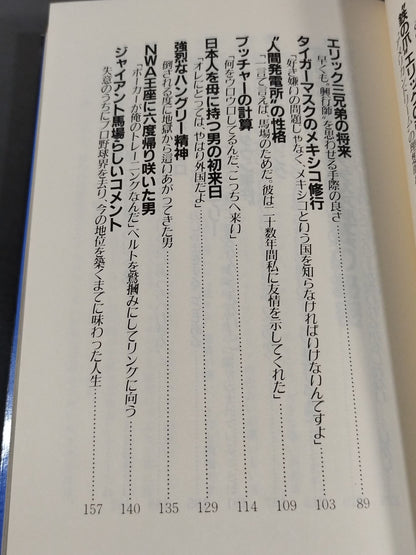 エリック三兄弟の将来
早くも〝興行師〟を思わせる手際の良さ……89
タイガーマスクのメキシコ修行
「好き嫌いの問題じゃなく、メキシコという国を知らなければいけないんですよ」……103
〝人間発電所〟の性格
「一言で言えば、馬場のためだ。彼は二十数年間私に友情を示してくれた」……109
ブッチャーの計算
「何をウロウロしてるんだ、こっちへ来い」……114
日本人を母に持つ男の初来日
「オレにとっては、やはり外国だよ」……129
強烈なハングリー精神
倒される度に地獄から這いあがってきた男……135
NWA王座に六度帰り咲いた男
「ポーカーが俺のトレーニングなんだ」ベルトを鷲摑みにしてリングに向う……140
ジャイアント馬場らしいコメント
失意のうちにプロ野球界を去り、今の地位を築くまでに味わった人生……157